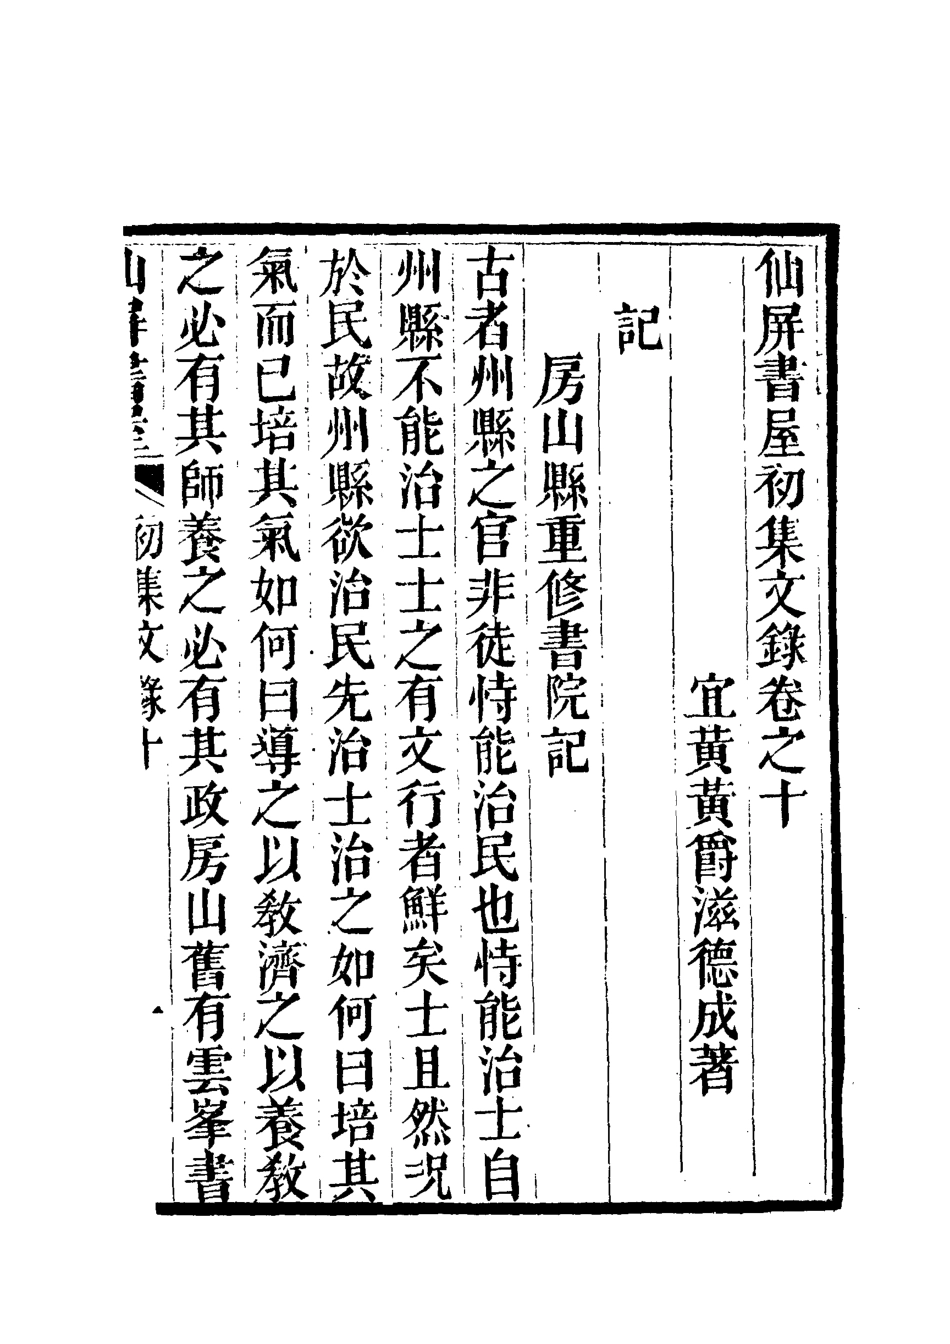 仙屏書屋初集文錄卷之十
宜黃黃爵滋德成著
記
房山縣重修書院記
古者州縣之官非徒恃能治民也恃能治士自
州縣不能治士士之有文行者鮮矣士且然況
於民故州縣欲治民先治士治之如何曰培其
氣而已培其氣如何曰導之以敎濟之以養敎
之必有其師養之必有其政房山舊有雲峯書
山屏書屋初集文錄十